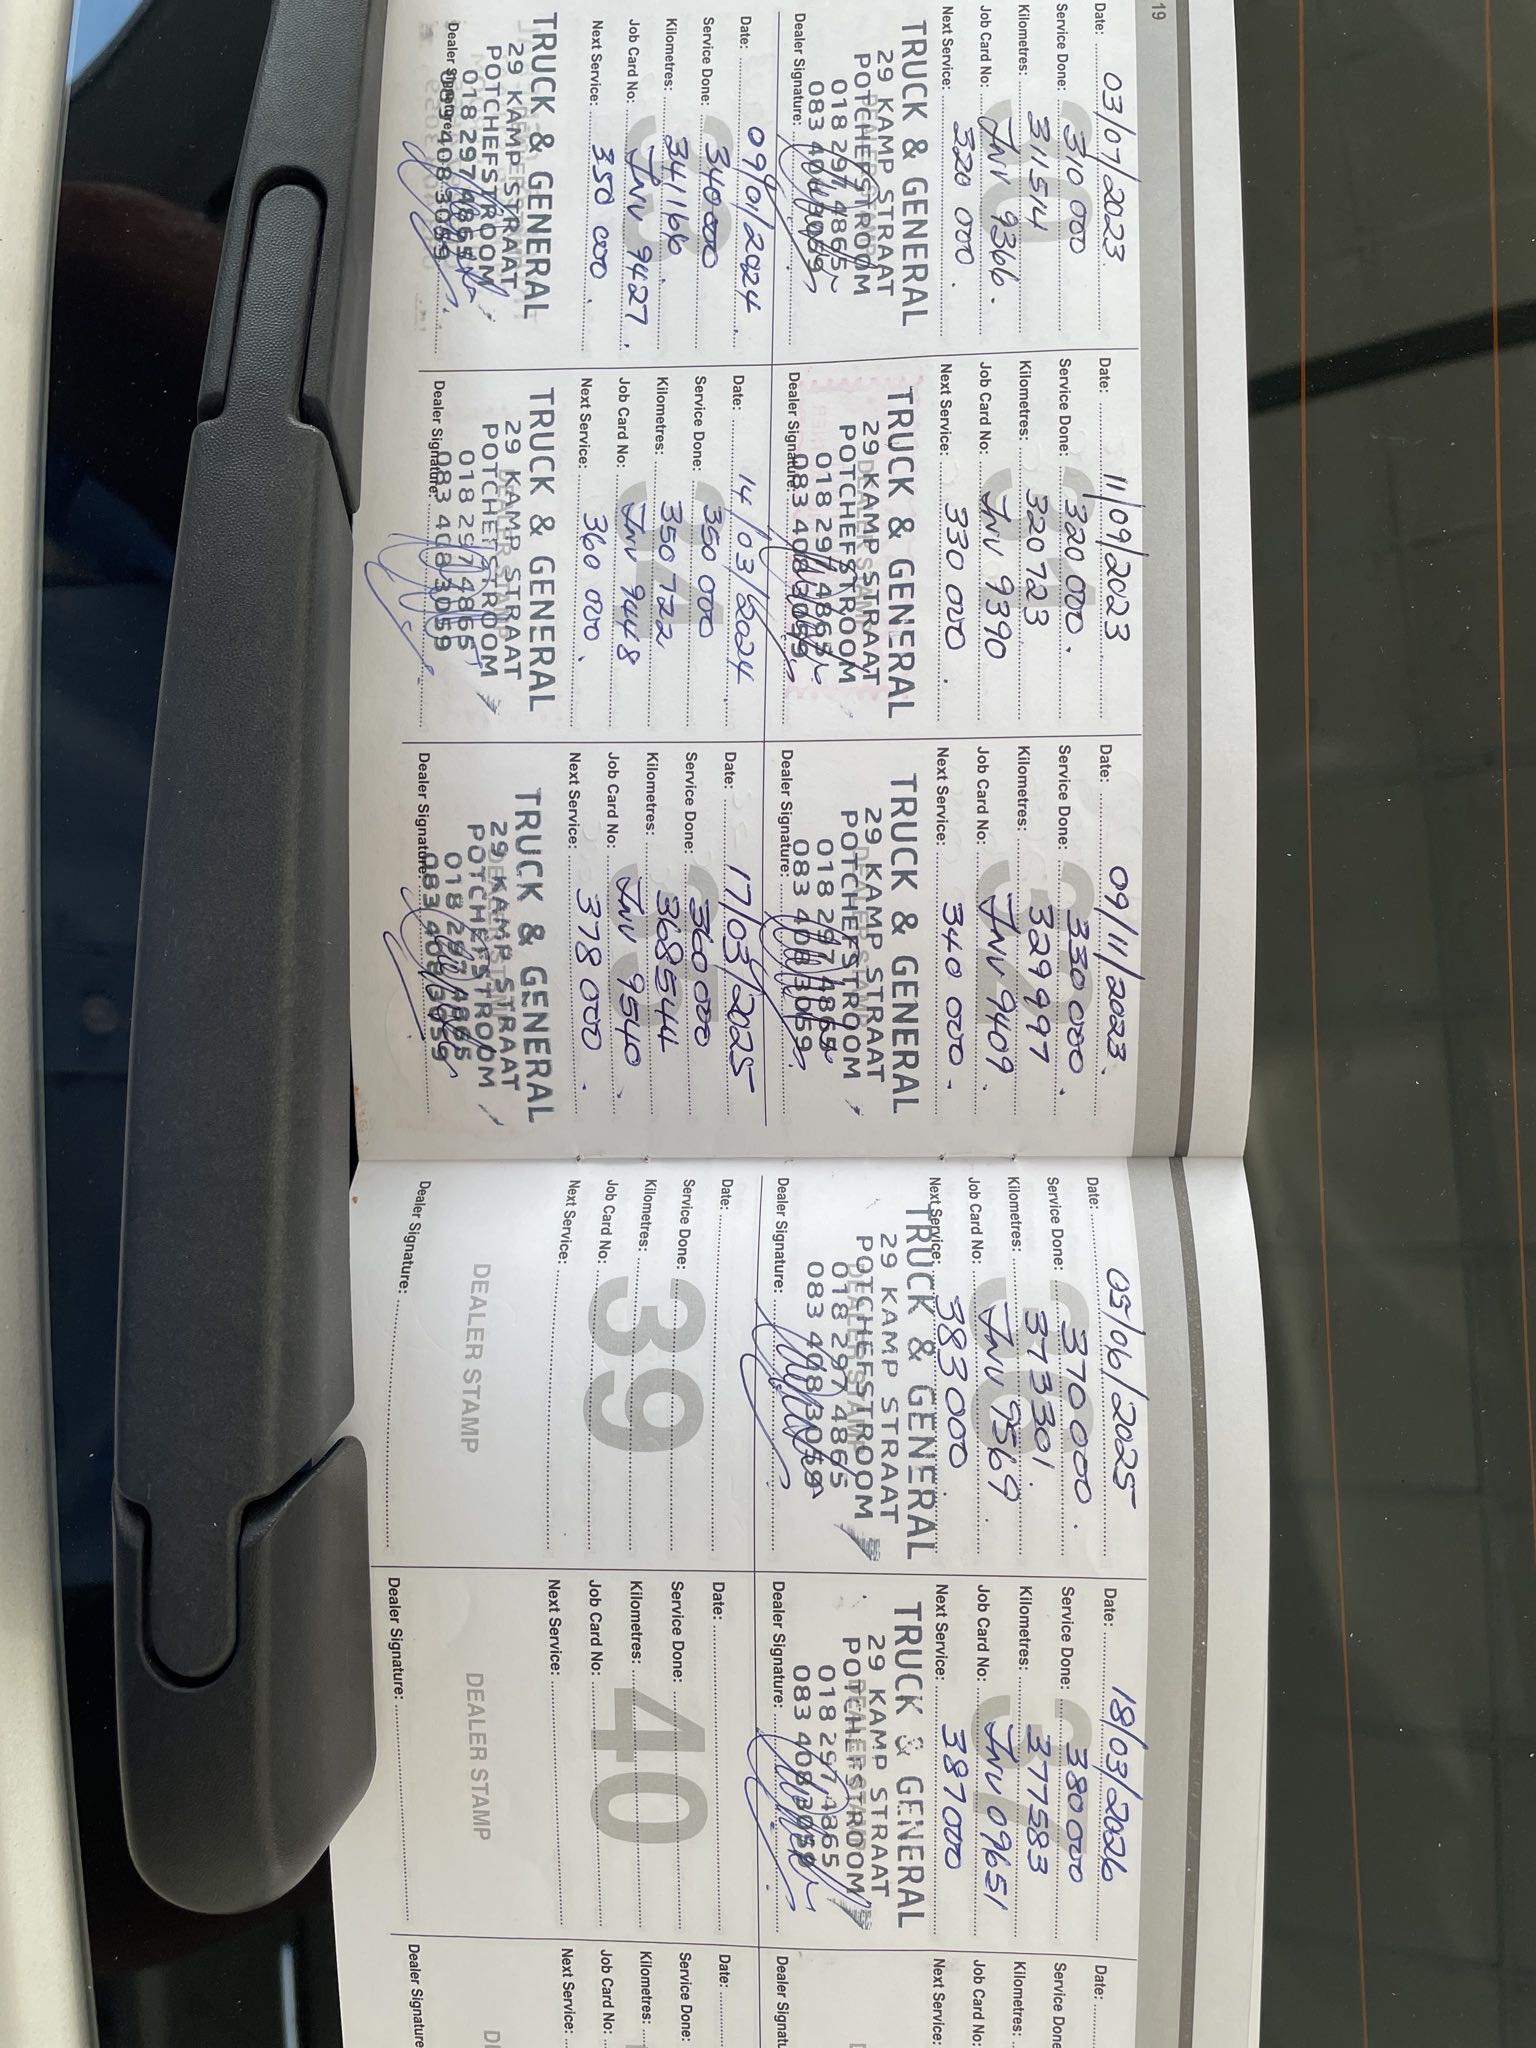 19
30
Date: 03/07/2023
Service Done: 310 000
Kilometres: 311514
Job Card No: INV 9366.
Next Service: 320 000.
TRUCK & GENERAL
29 KAMP STRAAT
POTCHEFSTROOM
018 297 4865
083 408 3059
Dealer Signature:
31
Date: 11/09/2023
Service Done: 320 000.
Kilometres: 320723
Job Card No: INV 9390
Next Service: 330 000.
TRUCK & GENERAL
29 KAMP STRAAT
POTCHEFSTROOM
018 297 4865
083 408 3059
Dealer Signature:
32
Date: 09/11/2023.
Service Done: 330 000.
Kilometres: 329997
Job Card No: INV 9409.
Next Service: 340 000.
DEALER STAMP
TRUCK & GENERAL
29 KAMP STRAAT
POTCHEFSTROOM
018 297 4865
083 408 3059
Dealer Signature:
33
Date: 09/01/2024
Service Done: 340000
Kilometres: 341166
Job Card No: INV 9427.
Next Service: 350 000.
TRUCK & GENERAL
29 KAMP STRAAT
POTCHEFSTROOM
018 297 4865
083 408 3059
Dealer Signature:
34
Date: 14/03/2024
Service Done: 350 000
Kilometres: 350 722
Job Card No: INV 9448
Next Service: 360 000.
DEALER STAMP
TRUCK & GENERAL
29 KAMP STRAAT
POTCHEFSTROOM
018 297 4865
083 408 3059
Dealer Signature:
35
Date: 17/03/2025
Service Done: 360 000
Kilometres: 368544
Job Card No: INV 9540.
Next Service: 378 000.
DEALER STAMP
TRUCK & GENERAL
29 KAMP STRAAT
POTCHEFSTROOM
018 297 4865
083 408 3059
Dealer Signature:
36
Date: 05/06/2025
Service Done: 370 000.
Kilometres: 373301
Job Card No: INV 9569.
Next Service: 383000.
DEALER STAMP
TRUCK & GENERAL
29 KAMP STRAAT
POTCHEFSTROOM
018 297 4865
083 408 3059
Dealer Signature:
37
Date: 18/03/2026
Service Done: 380000
Kilometres: 377583
Job Card No: INV 09651
Next Service: 387000
DEALER STAMP
TRUCK & GENERAL
29 KAMP STRAAT
POTCHEFSTROOM
018 297 4865
083 408 3059
Dealer Signature:
Date:
Service Done:
Kilometres:
Job Card No:
Next Service:
Dealer Signat
39
Date:
Service Done:
Kilometres:
Job Card No:
Next Service:
DEALER STAMP
Dealer Signature:
40
Date:
Service Done:
Kilometres:
Job Card No:
Next Service:
DEALER STAMP
Dealer Signature:
Date:
Service Done:
Kilometres:
Job Card No:
Next Service:
Dealer Signature: